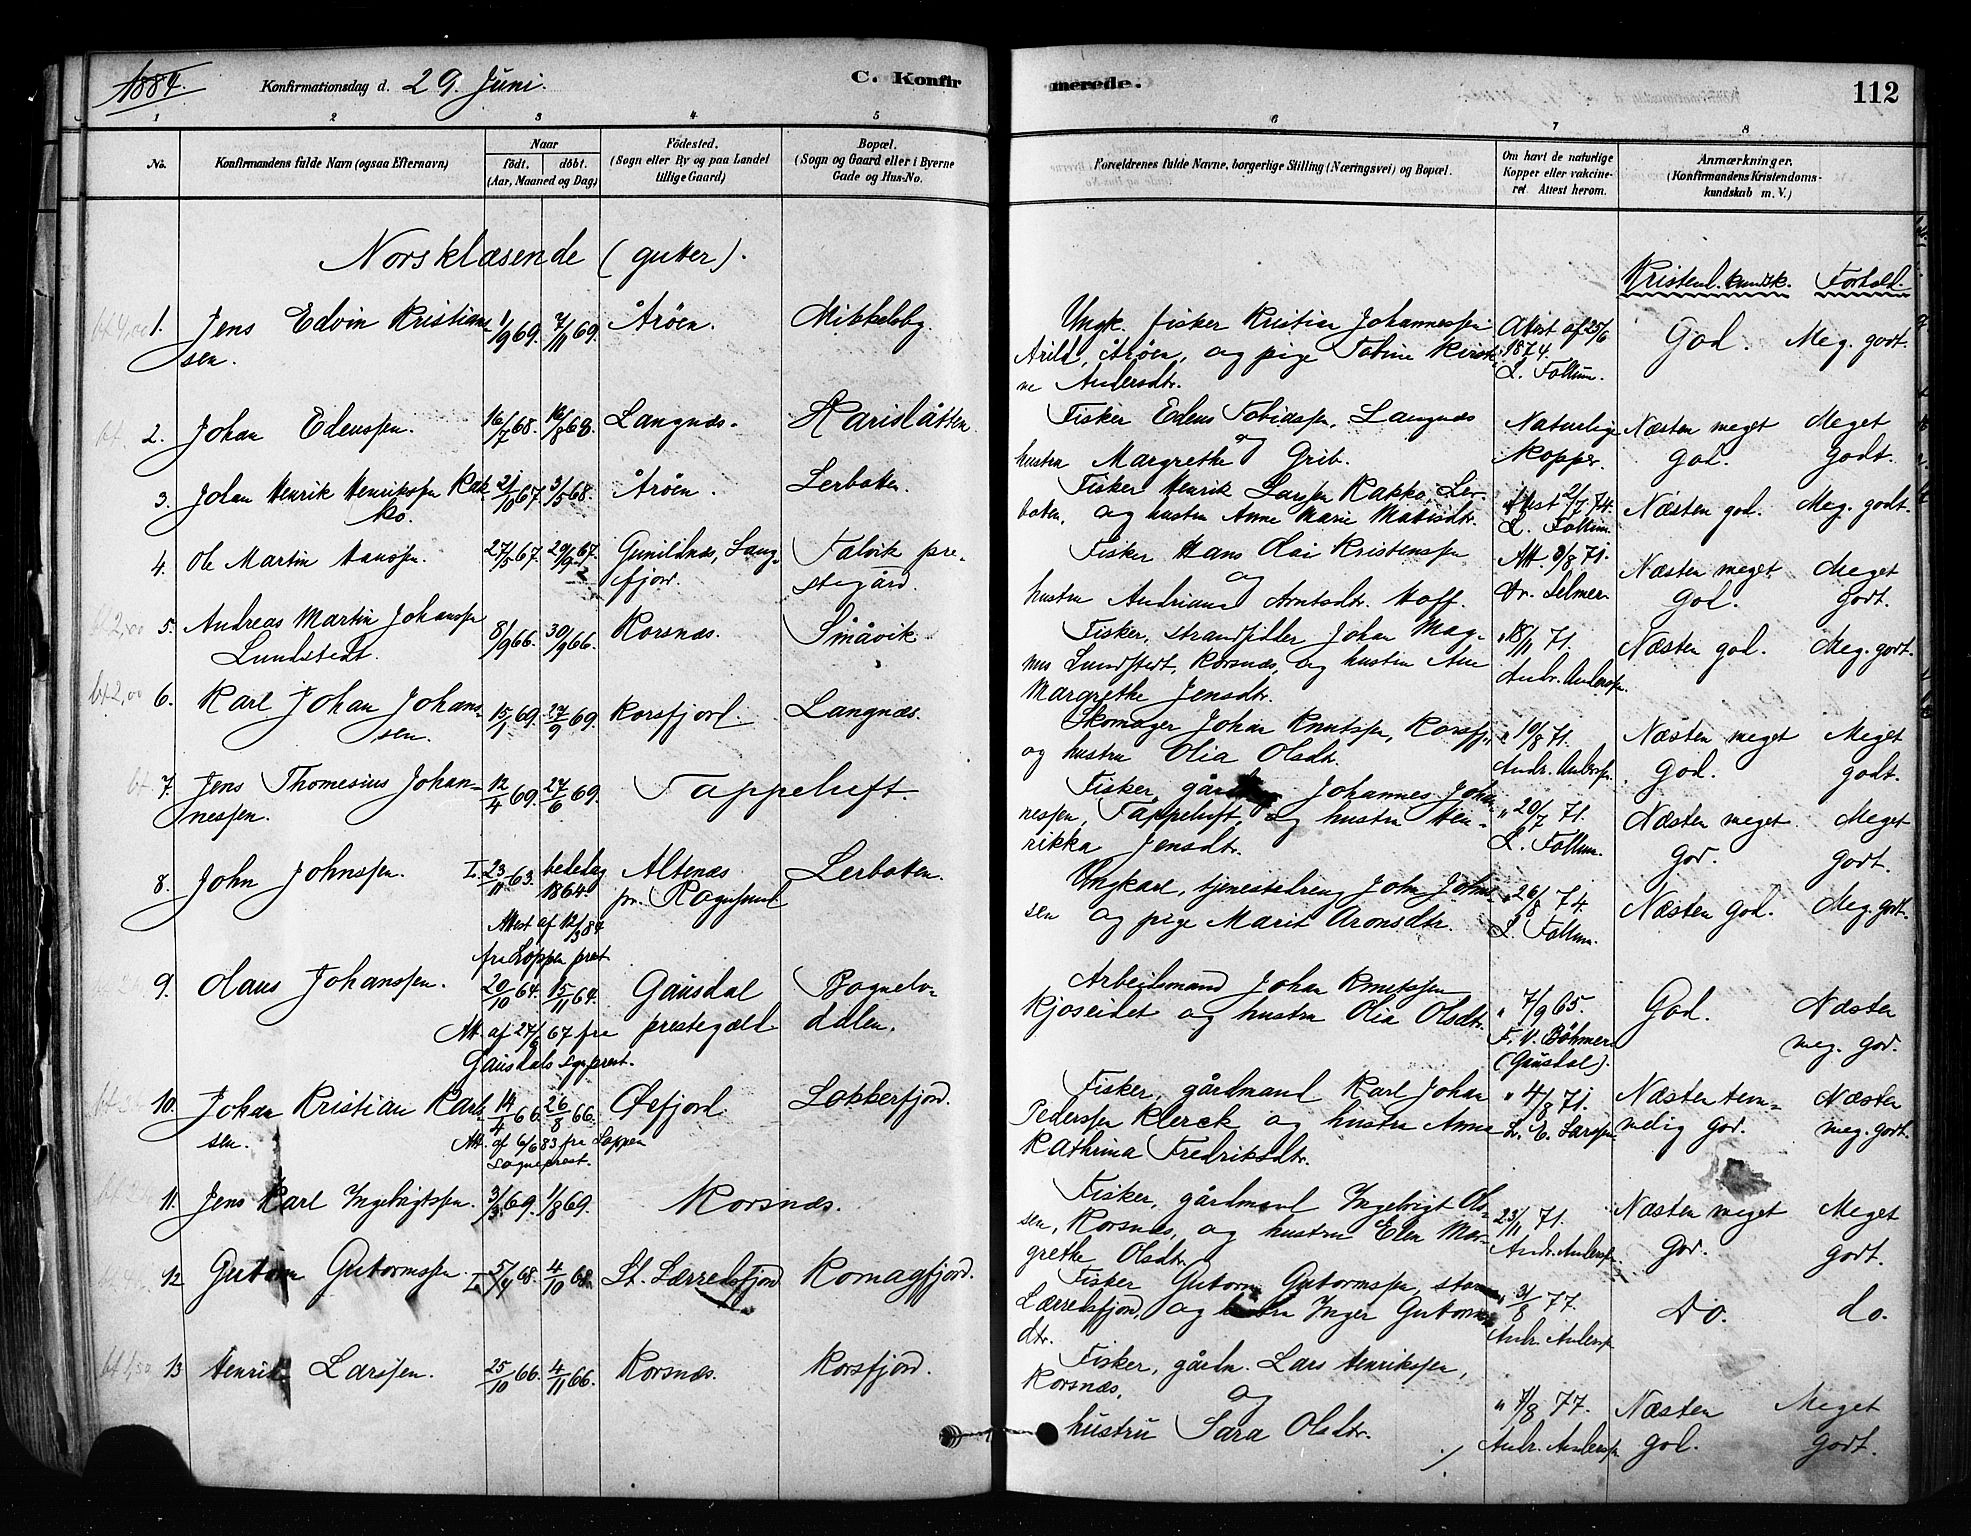 1884. Konfirmationsdag d. 29. Juni. C. Konfirmerede. 112
1 2 3 4 5 6 7 8
No. Konfirmandens fulde Navn (ogsaa Efternavn) Naar født. døbt. (Aar, Maaned og Dag) Fødested. (Sogn eller By og paa Landet tillige Gaard) Bopæl. (Sogn og Gaard eller i Byerne Gade og Hus-No.
Forældrenes fulde Navne, borgerlige Stilling (Næringsvei) og Bopæl. Om havt de naturlige Kopper eller vakcineret. Attest herom. Anmærkninger. (Konfirmandens Kristendomskundskab m. V.)
Norsklæsende (gutter).
Kristend. kundsk. Forhold.
1. Jens Edvin Kristian-
sen. 1/9 69. 7/11 69. Årøen. Mikkelsby.
Ungk. fisker Kristian Johannessen
Arild, Årøen, og pige Tobine Kirsti-
ne Andersdtr. Attest af 25/6 1874. L. Follum. God. Meg. godt.
2. Johan Edenssen. 16/7 68. 16/8 68. Langnæs. Harislåtten.
Fisker Edens Tobiassen, Langnæs
og
hustru Margrethe Grib. Naturlige Kopper. Næsten meget god. Meget godt.
3. Johan Henrik Henrikssen Rak-
ko. 21/10 67. 3/5 68. Årøen. Lerbotten.
Fisker Henrik Larssen Rakko, Ler-
boten, og hustru Anne Marie Matisdtr. Attest 2/7 74. L. Follum. Næsten god. Meg. godt.
4. Ole Martin Hanssen. 27/5 67. 29/9 67. Gunildnæs, Lang-
fjord. Talvik pre-
stegård.
Fisker Hans Olai Kristenssen
og
hustru Andriane Arntsdtr. Hoff. Att. 3/8 71. Dr. Selmer. Næsten meget god. Meget godt.
5. Andreas Martin Johanssen
Lundstedt. 8/9 66. 30/9 66. Korsnæs. Småvik
Fisker, strandsidder Johan Mag-
nus Lundstedt, Korsnæs, og hustru Ane
Margrethe Jensdtr. " 18/11 71. Andr. Anderssen. Næsten god. Meg. godt.
6. Karl Johan Johans-
sen. 15/1 69. 27/9 69. Korsfjord. Langnæs.
Skomager Johan Knutssen, Korsfj.
og hustru Olia Olsdtr. " 10/8 71. Andr. Anderssen. Næsten meget god. Meget godt.
7. Jens Thomesius Johan-
nessen. 12/4 69. 27/6 69. Tappeluft.
Fisker, Johannes Johan-
nessen, Tappeluft, og hustru Hen-
rikka Jensdtr. " 20/7 71. L. Follum. Næsten meget god. Meget godt.
8. John Johnssen. 23/11 63. bededag 1864. Altenæs
pr. Rognsund Lerboten.
Attest af 12/3 84
fra Loppen prest
Ungkarl, tjenestedreng John Johns-
sen og pige Marit Aronsdtr. " 26/8 74. L. Follum. Næsten god. Meg. godt.
9. Olaus Johanssen. 20/10 64. 15/11 64. Gausdal
prestegæld Bognelv-
dalen.
Att. af 27/6 67 fra
Gausdals sogneprest.
Arbeidsmand Johan Knutssen
Kjoseidet og hustru Olia Olsdtr. " 7/9 65. F. V. Böhmer (Gausdal). God. Næsten meg. god.
10. Johan Kristian Karl-
sen. 14/4 66. 26/8 66. Øxfjord. Lokkerfjord.
Att. af 6/6 83 fra Loppen
sogneprest.
Fisker, gårdmand Karl Johan
Pederssen Klerck og hustru Anne
Kathrina Fredriksdtr. " 4/8 71. L. E. Larssen. Næsten tem-
melig god. Næsten meg. godt.
11. Jens Karl Ingebrigtssen. 3/3 69. 1/8 69. Korsnæs.
Fisker, gårdmand Ingebrigt Ols-
sen, Korsnæs, og hustru Elen Mar-
grethe Olsdtr. 23/11 71. Andr. Anderss. Næsten meget god. Meget godt.
12 Gutorm Gutormssen. 5/4 68. 4/10 68. St. Lærredsfjord Komagfjord.
Fisker Gutorm Gutormssen, store
Lærredsfjord, og hustru Inger Gutorms-
dtr. " 31/8 77. Andr. Anderss. Do. do.
13 Henrik Larssen. 25/10 66. 4/11 66. Korsnæs. Korsfjord.
Fisker, gårdm. Lars Henrikssen,
Korsnæs, og
hustru Sara Olsdtr. " 4/8 77. Andr. Anderss. Næsten god. Meget godt.